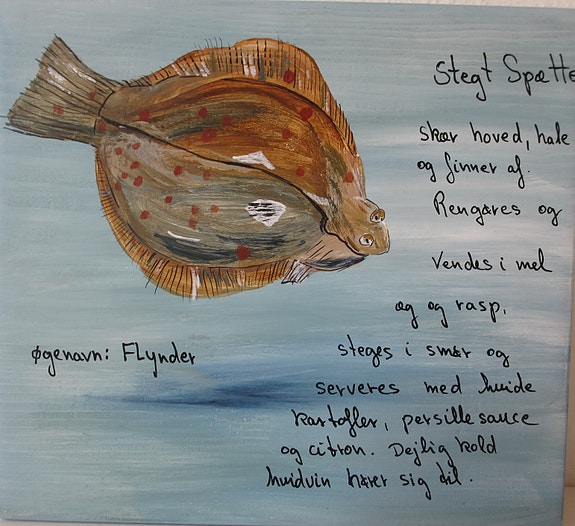 Stegt Spætte
Skær hoved, hale
og finner af.
Rengøres og
Vendes i mel
æg og rasp,
steges i smør og
øgenavn: FLynder
serveres med hvide
kartofler, persille sauce
og citron. Dejlig kold
hvidvin hører sig til.